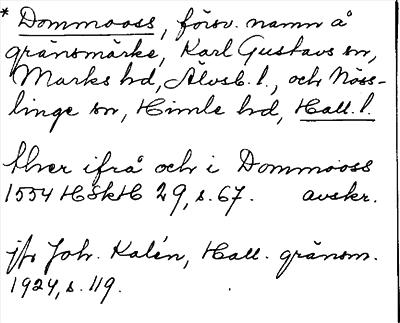 * Dommooss, försv. namn å
gränsmärke, Karl Gustavs sn,
Marks hd, Älvsb. l., och Nöss-
linge sn, Himle hd, Hall. l.
thver ifrå och i Dommooss
1554 HSkH 29, s. 67. avskr.
jfr Joh. Kalén, Hall. gränsm.
1924, s. 119.